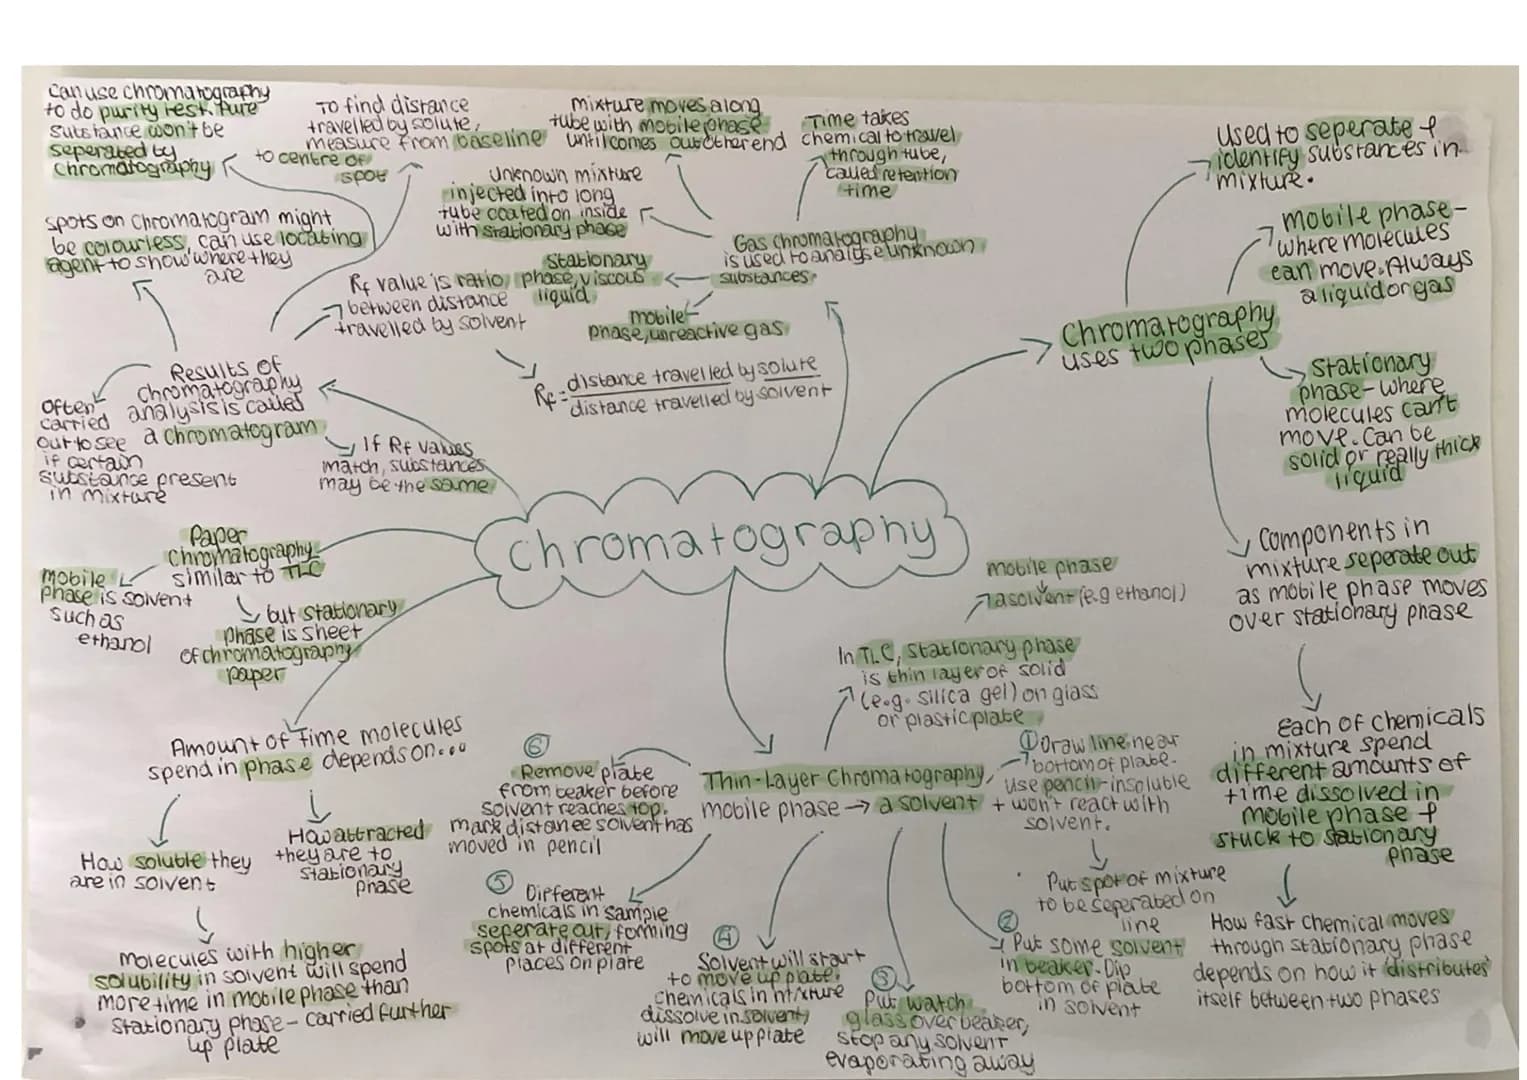 Chromatography
Chromatography
uses two phases
used to seperate &
identify substances in
mixture.
mobile phase-
where molecules
can move. Always
a liquid or gas
Stationary
phase- where
molecules can't
move. Can be
solid or really thick
liquid
Components in
mixture seperate out
as mobile phase moves
over stationary phase
Each of chemicals
in mixture spend
different amounts of
time dissolved in
mobile phase &
stuck to stationary
phase
How fast chemical moves
through stationary phase
depends on how it 'distributes'
itself between two phases
Gas chromatography
is used to analyse unknown
substances.
Time takes
chemical to travel
through tube,
called retention
time
mixture moves along
tube with mobile phase
until comes out other end
Unknown mixture
injected into long
tube coated on inside
with stationary phase
Stationary
phase, viscous
liquid
mobile
phase, unreactive gas
Results of
chromatography
analysis is called
a chromatogram
Can use chromatography
to do purity test. Pure
substance won't be
seperated by
chromatography
To find distance
travelled by solute,
measure from baseline
to centre of
spot
Spots on chromatogram might
be colourless, can use locating
agent to show where they
are
Rf value is ratio
between distance
travelled by solvent
Rf = distance travelled by solute
distance travelled by solvent
Often
carried
out to see
if certain
substance present
in mixture
If Rf values
match, substances
may be the same
Paper
chromatography
similar to TLC
mobile
phase is solvent
such as
ethanol
but stationary
phase is sheet
of chromatography
paper
Amount of time molecules
spend in phase depends on...
How soluble they
are in solvent
How attracted
they are to
stationary
phase
molecules with higher
solubility in solvent will spend
more time in mobile phase than
stationary phase- carried further
up plate
Thin-Layer Chromatography
mobile phase → a solvent
In TLC, stationary phase
is thin layer of solid
(e.g. silica gel) on glass
or plastic plate
mobile phase
a solvent (e.g ethanol)
① Draw line near
bottom of plate.
Use pencil-insoluble
+ won't react with
solvent.
Put spot of mixture
to be seperated on
line
②
Put some solvent
in beaker. Dip
bottom of plate
in solvent
③
Put watch
glass over beaker,
stop any solvent
evaporating away
④
Solvent will start
to move up plate.
chemicals in mixture
dissolve in solvent,
will move up plate
⑤
Different
chemicals in sample
seperate out, forming
spots at different
places on plate
⑥
Remove plate
from beaker before
solvent reaches top.
mark distance solvent has
moved in pencil